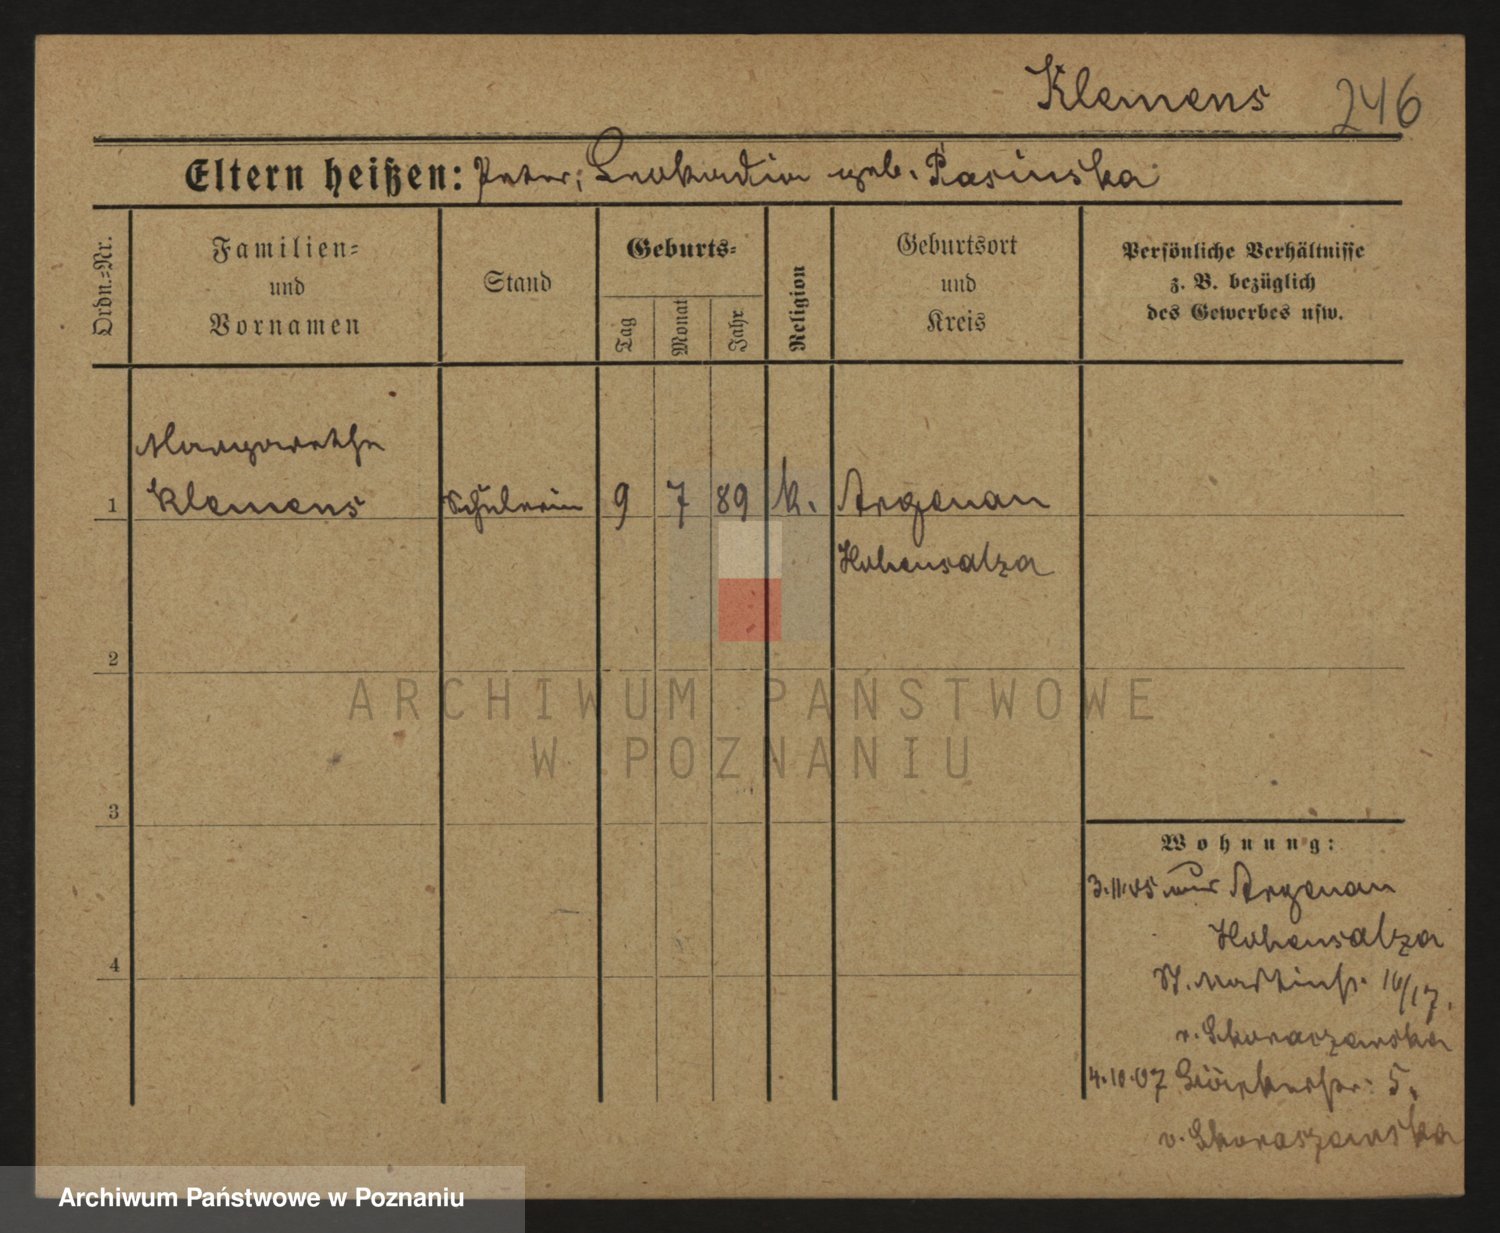 Klemens 246
Eltern heißen: Peter; Leokadia geb. Rasinska
Ordn.-Nr.
Familien-
und
Vornamen
Stand
Geburts-
Tag
Monat
Jahr
Religion
Geburtsort
und
Kreis
Persönliche Verhältnisse
z. B. bezüglich
des Gewerbes usw.
Margarethe
1 Klemens Schülerin 9 7 89 k. Argenau
Hohensalza
2
ARCHIWUM PAŃSTWOWE
W POZNANIU
3
Wohnung:
3.11.05 aus Argenau
Hohensalza
4
St. Martinstr. 16/17.
4.10.07 5.
Archiwum Państwowe w Poznaniu